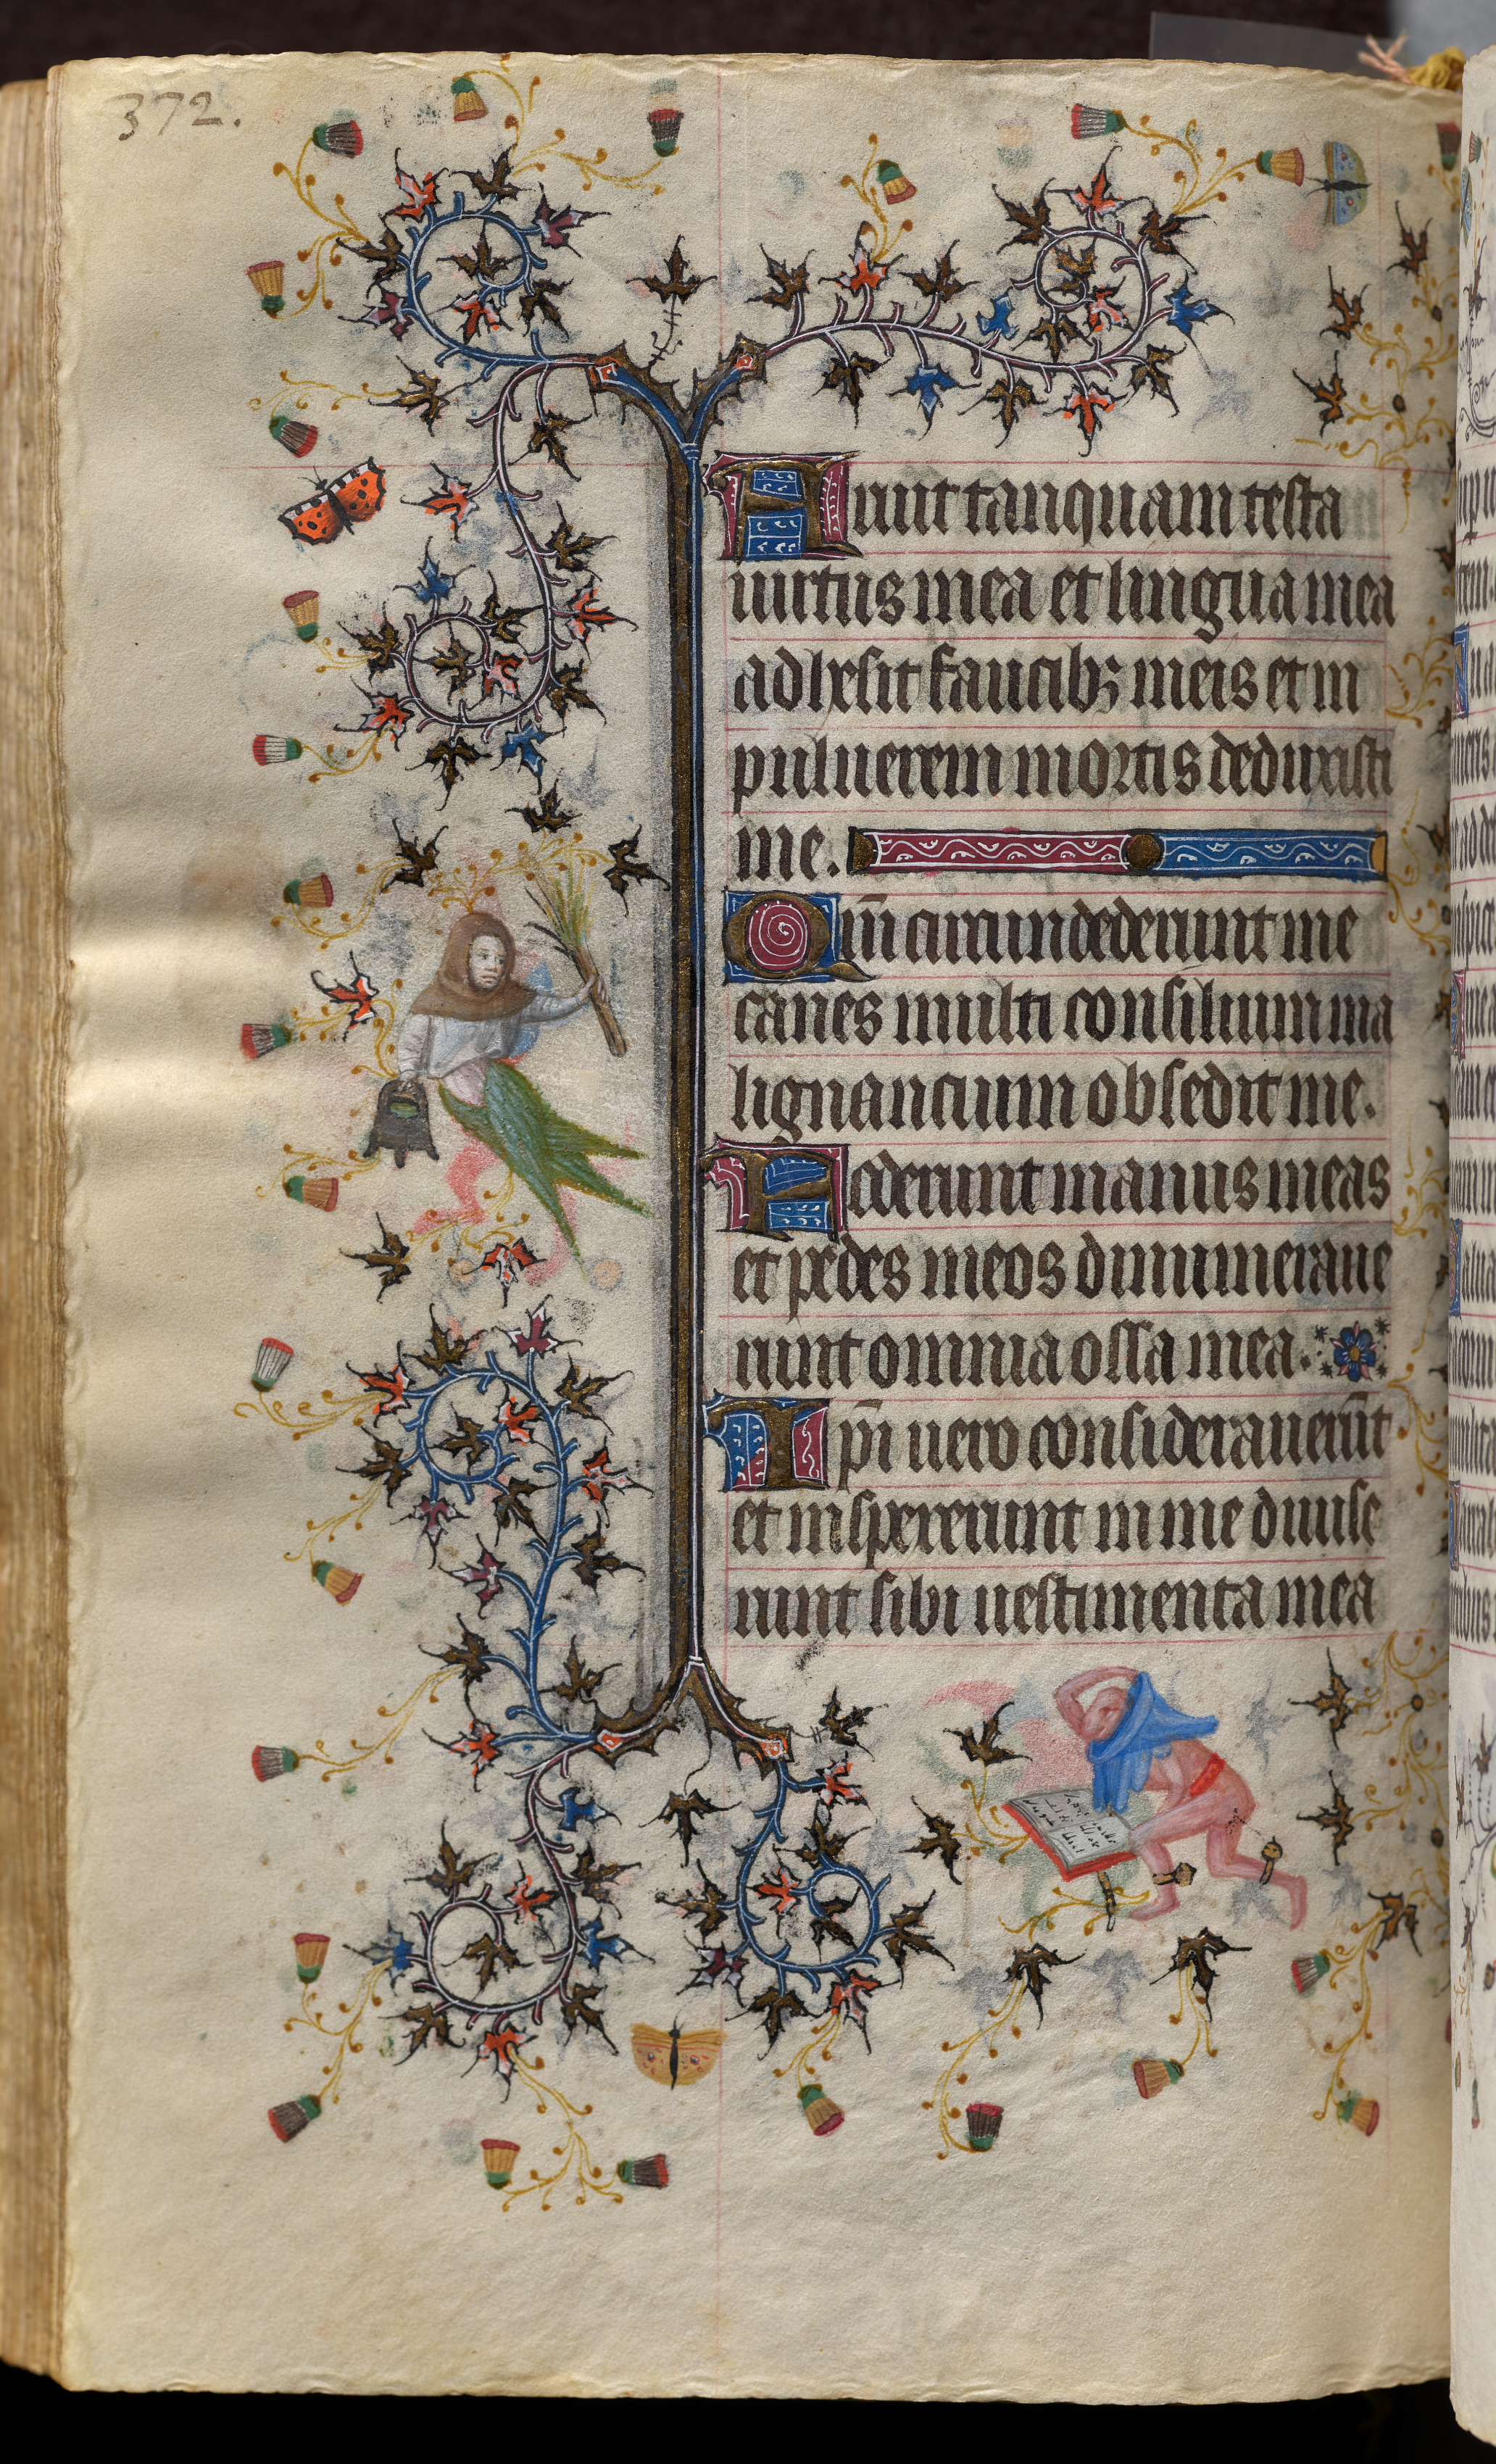 372.
Aruit tanquam testa
uirtus mea et lingua mea
adhesit faucibꝫ meis et in
puluerem mortis deduxisti
me.
Qm̄ circundederunt me
canes multi consilium ma
lignancium obsedit me.
Foderunt manus meas
et pedes meos dinumeraue
runt omnia ossa mea.
Ip̄i uero considerauerūt
et inspexerunt in me diuise
runt sibi uestimenta mea